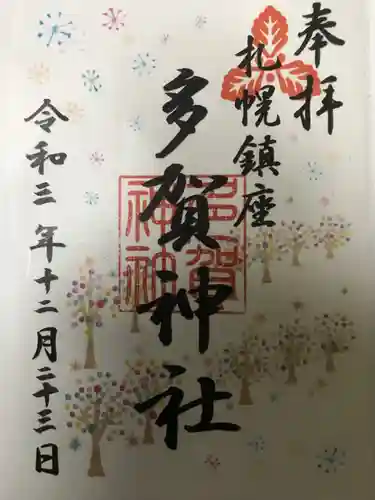 奉拝
札幌鎮座
多賀神社
多賀
神社
令和三年十二月二十三日